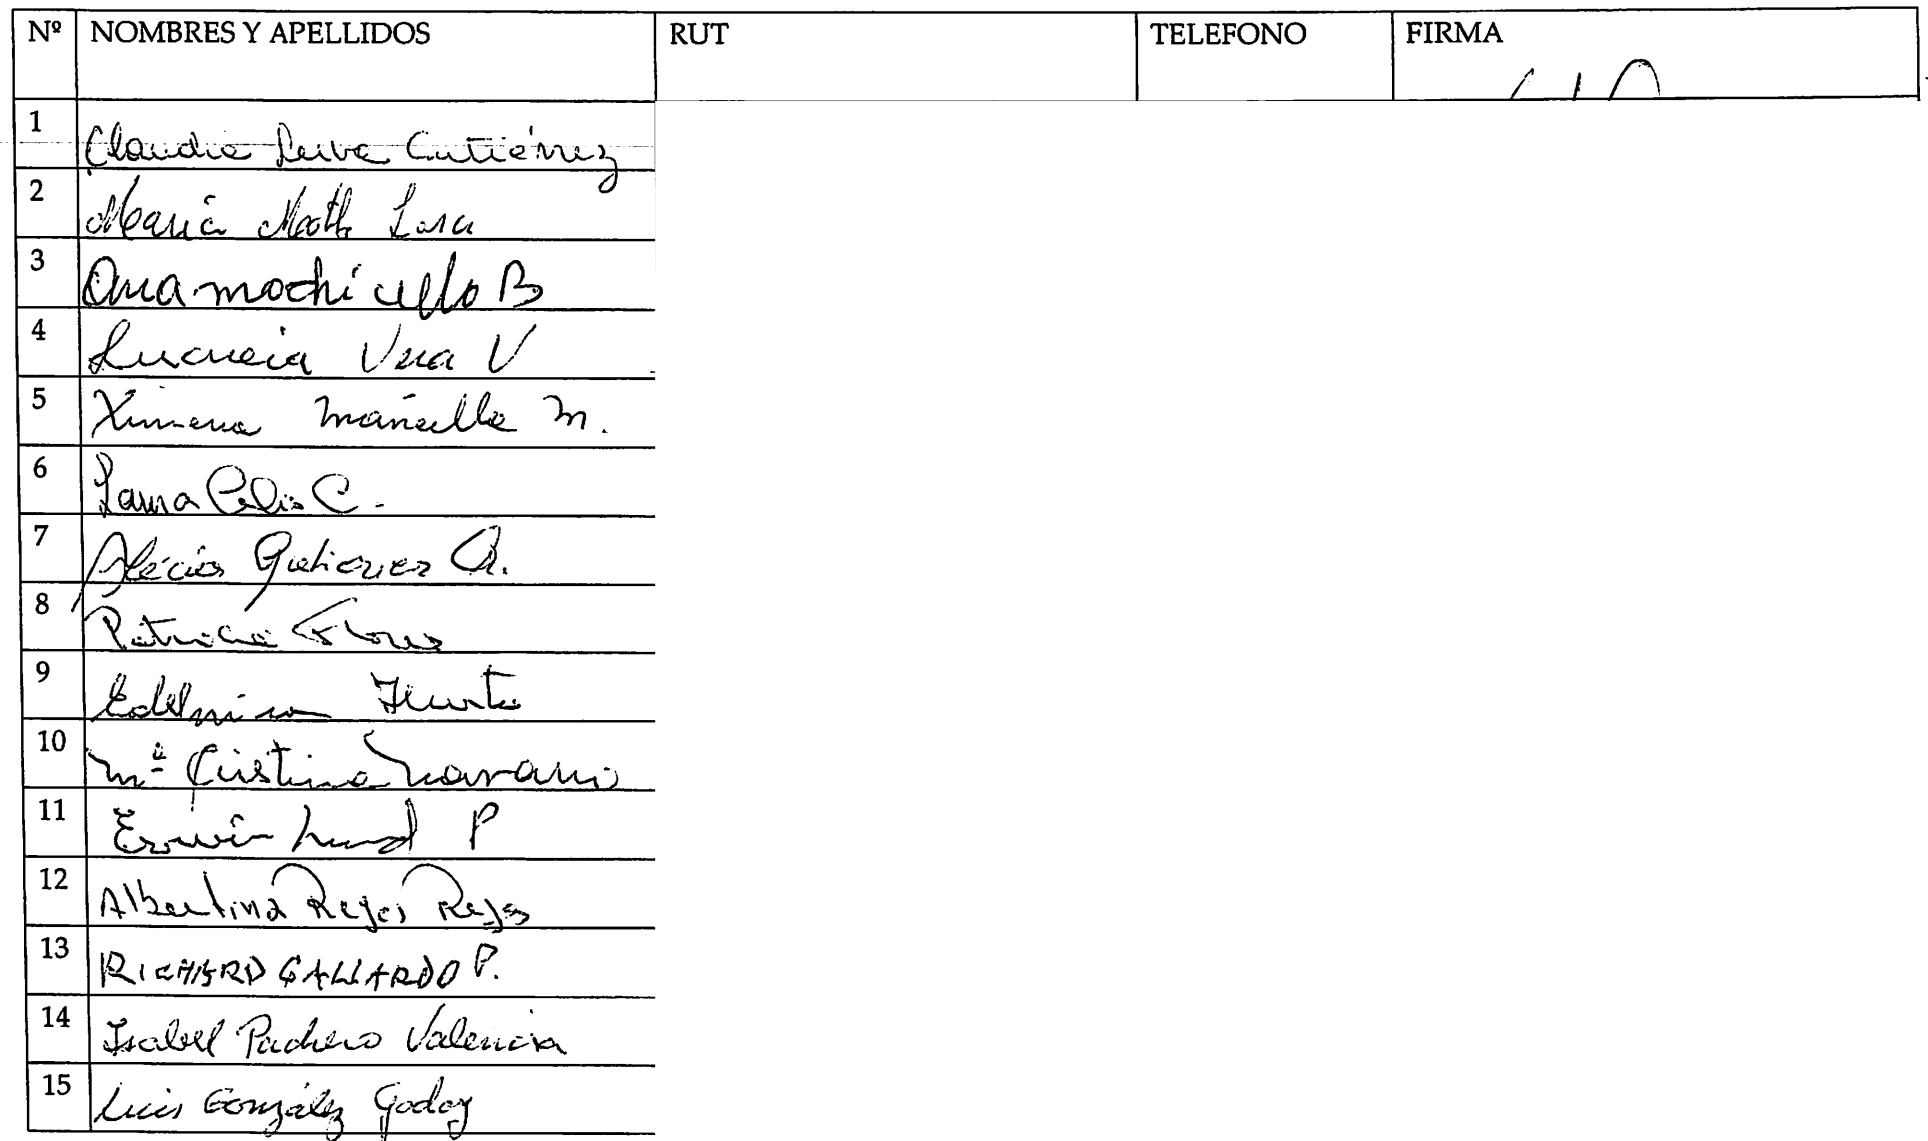 Nº NOMBRES Y APELLIDOS RUT TELEFONO FIRMA
1 Claudia Leiva Gutiérrez
2 Maria Lara
3 Ana B
4 Lucrecia Vera V
5 Ximena Mancilla M.
6 Laura Celis C.
7 Gutierrez
8 Patricia Flores
9 Edelmira Huerta
10 Mª Cristina Navarro
11 Erwin Lund P
12 Albertina Reyes Reyes
13 RICHARD GALLARDO P.
14 Isabel Pacheco Valencia
15 Luis González Godoy